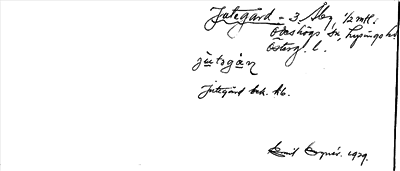 Jutegård – 3 Sby, 1/2 mtl.
Ödeshögs sn, Lysings hd
Östergl. l.
jùtəgàn
Jutegård bek. hb.
1929.